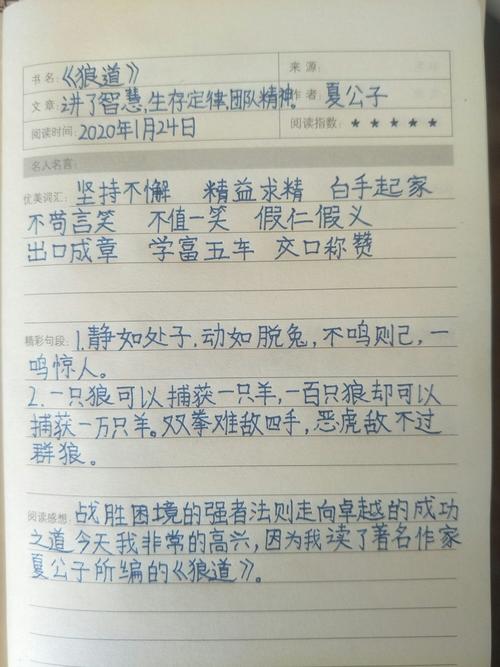 书名：《狼道》 来源：
文章：讲了智慧,生存定律,团队精神。 作者：夏公子
阅读时间：2020年1月24日 阅读指数：★ ★ ★ ★ ★
名人名言：
优美词汇：坚持不懈 精益求精 白手起家
不苟言笑 不值一笑 假仁假义
出口成章 学富五车 交口称赞
精彩句段：1.静如处子,动如脱兔,不鸣则己,一
鸣惊人。
2.一只狼可以捕获一只羊,一百只狼却可以
捕获一万只羊。双拳难敌四手,恶虎敌不过
群狼。
阅读感想：战胜困境的强者法则走向卓越的成功
之道今天我非常的高兴,因为我读了著名作家
夏公子所编的《狼道》。